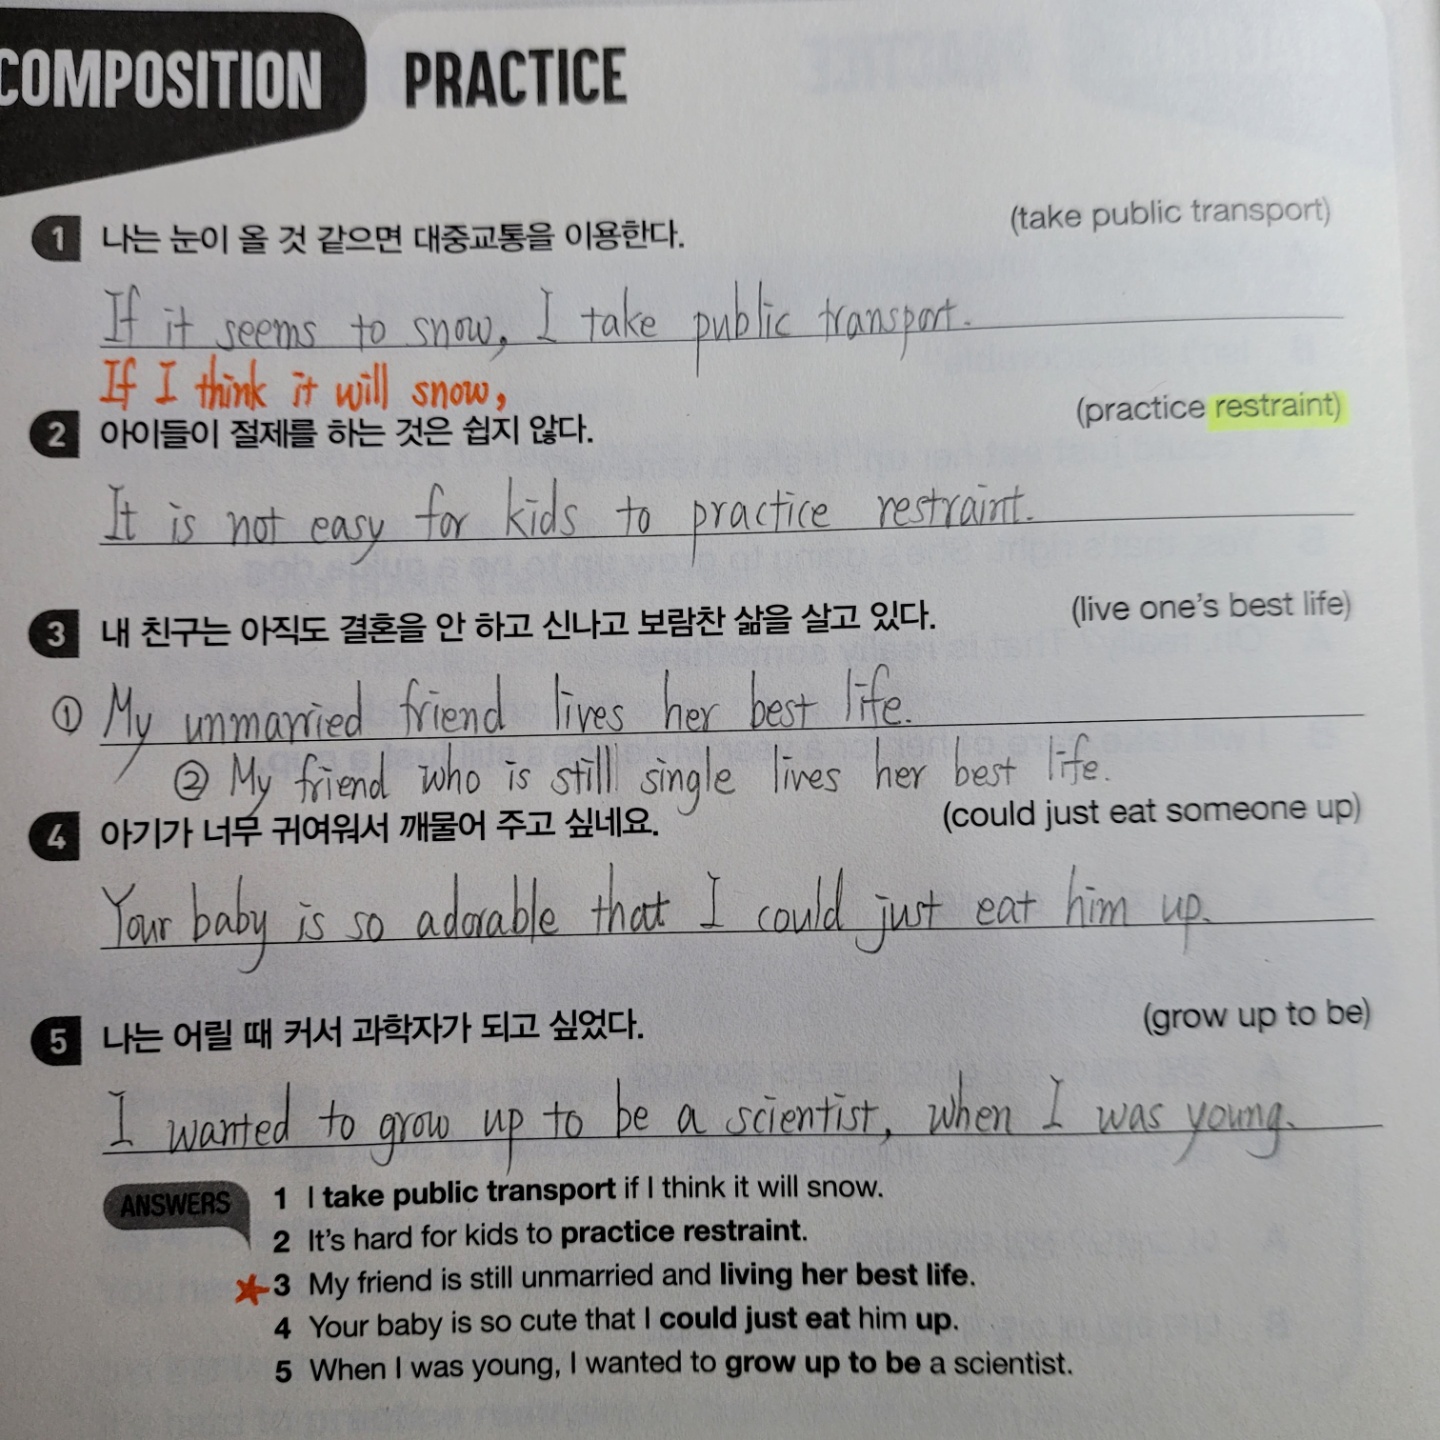 COMPOSITION PRACTICE
1 나는 눈이 올 것 같으면 대중교통을 이용한다. (take public transport)
If it seems to snow, I take public transport.
If I think it will snow,
2 아이들이 절제를 하는 것은 쉽지 않다. (practice restraint)
It is not easy for kids to practice restraint.
3 내 친구는 아직도 결혼을 안 하고 신나고 보람찬 삶을 살고 있다. (live one's best life)
① My unmarried friend lives her best life.
② My friend who is still single lives her best life.
4 아기가 너무 귀여워서 깨물어 주고 싶네요. (could just eat someone up)
Your baby is so adorable that I could just eat him up.
5 나는 어릴 때 커서 과학자가 되고 싶었다. (grow up to be)
I wanted to grow up to be a scientist, when I was young.
ANSWERS 1 I take public transport if I think it will snow.
2 It's hard for kids to practice restraint.
3 My friend is still unmarried and living her best life.
4 Your baby is so cute that I could just eat him up.
5 When I was young, I wanted to grow up to be a scientist.